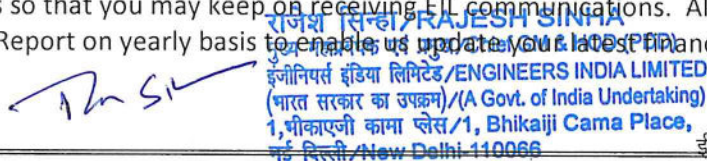 s so that you may keep on receiving EIL communications. Al
राजेश सिन्हा/RAJESH SINHA
Report on yearly basis to enable us update your latest financ
इंजीनियर्स इंडिया लिमिटेड/ENGINEERS INDIA LIMITED
(भारत सरकार का उपक्रम)/(A Govt. of India Undertaking)
1,भीकाएजी कामा प्लेस/1, Bhikaiji Cama Place,
नई दिल्ली/New Delhi-110066